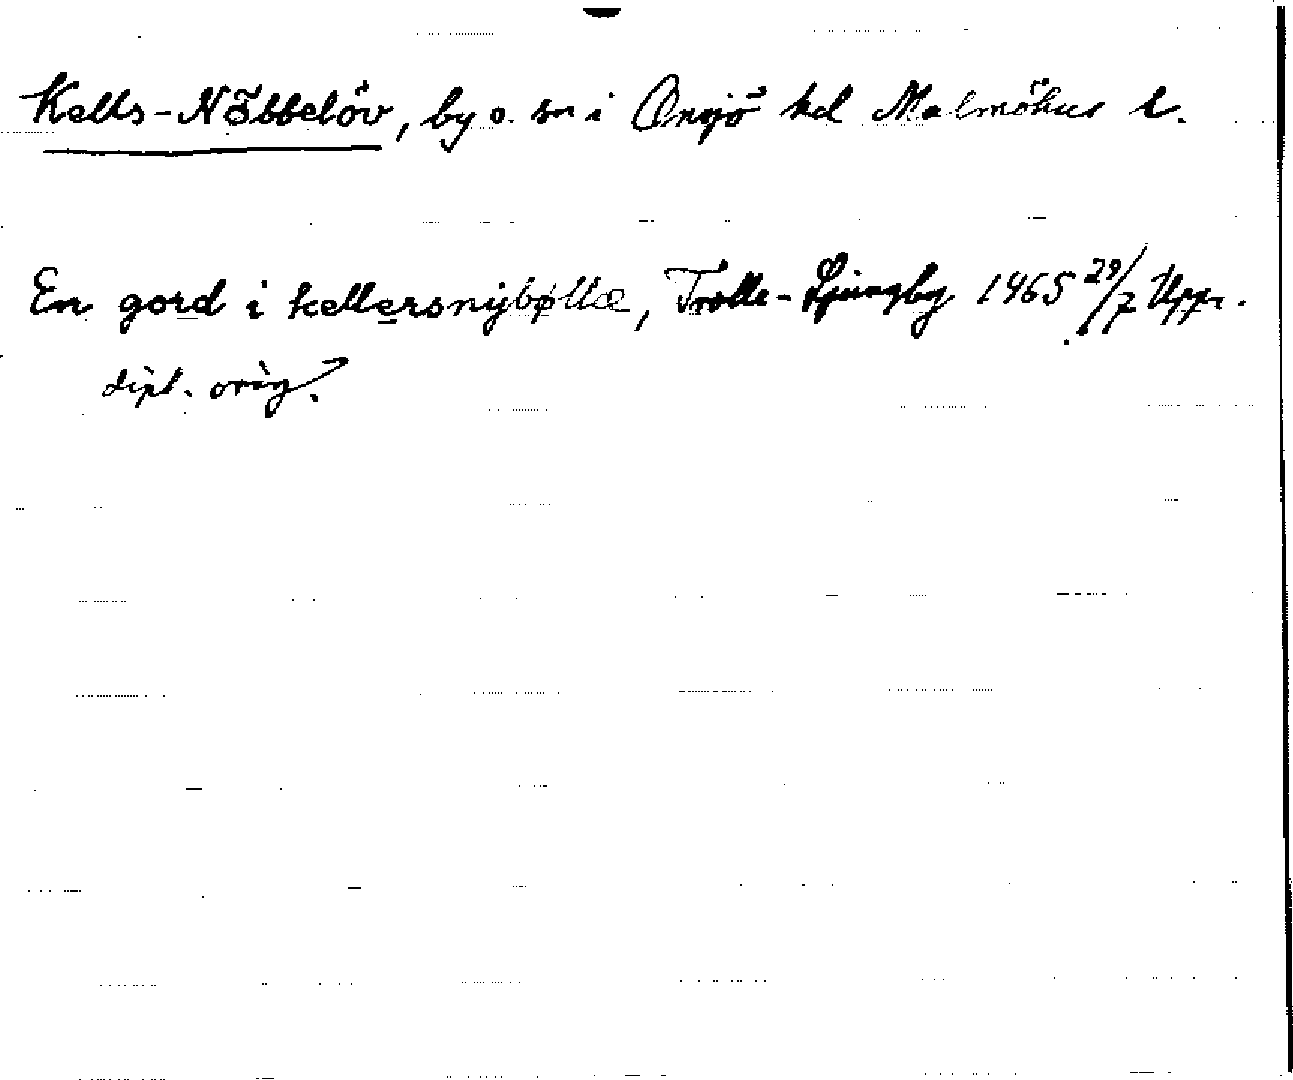 Kells-Nöbbelöv, by o. sn i Onsjö hd Malmöhus l.
En gord i kellersnybøllæ, Trolle-Ljungby 1465 29/7 Uppr.
dipl. orig.